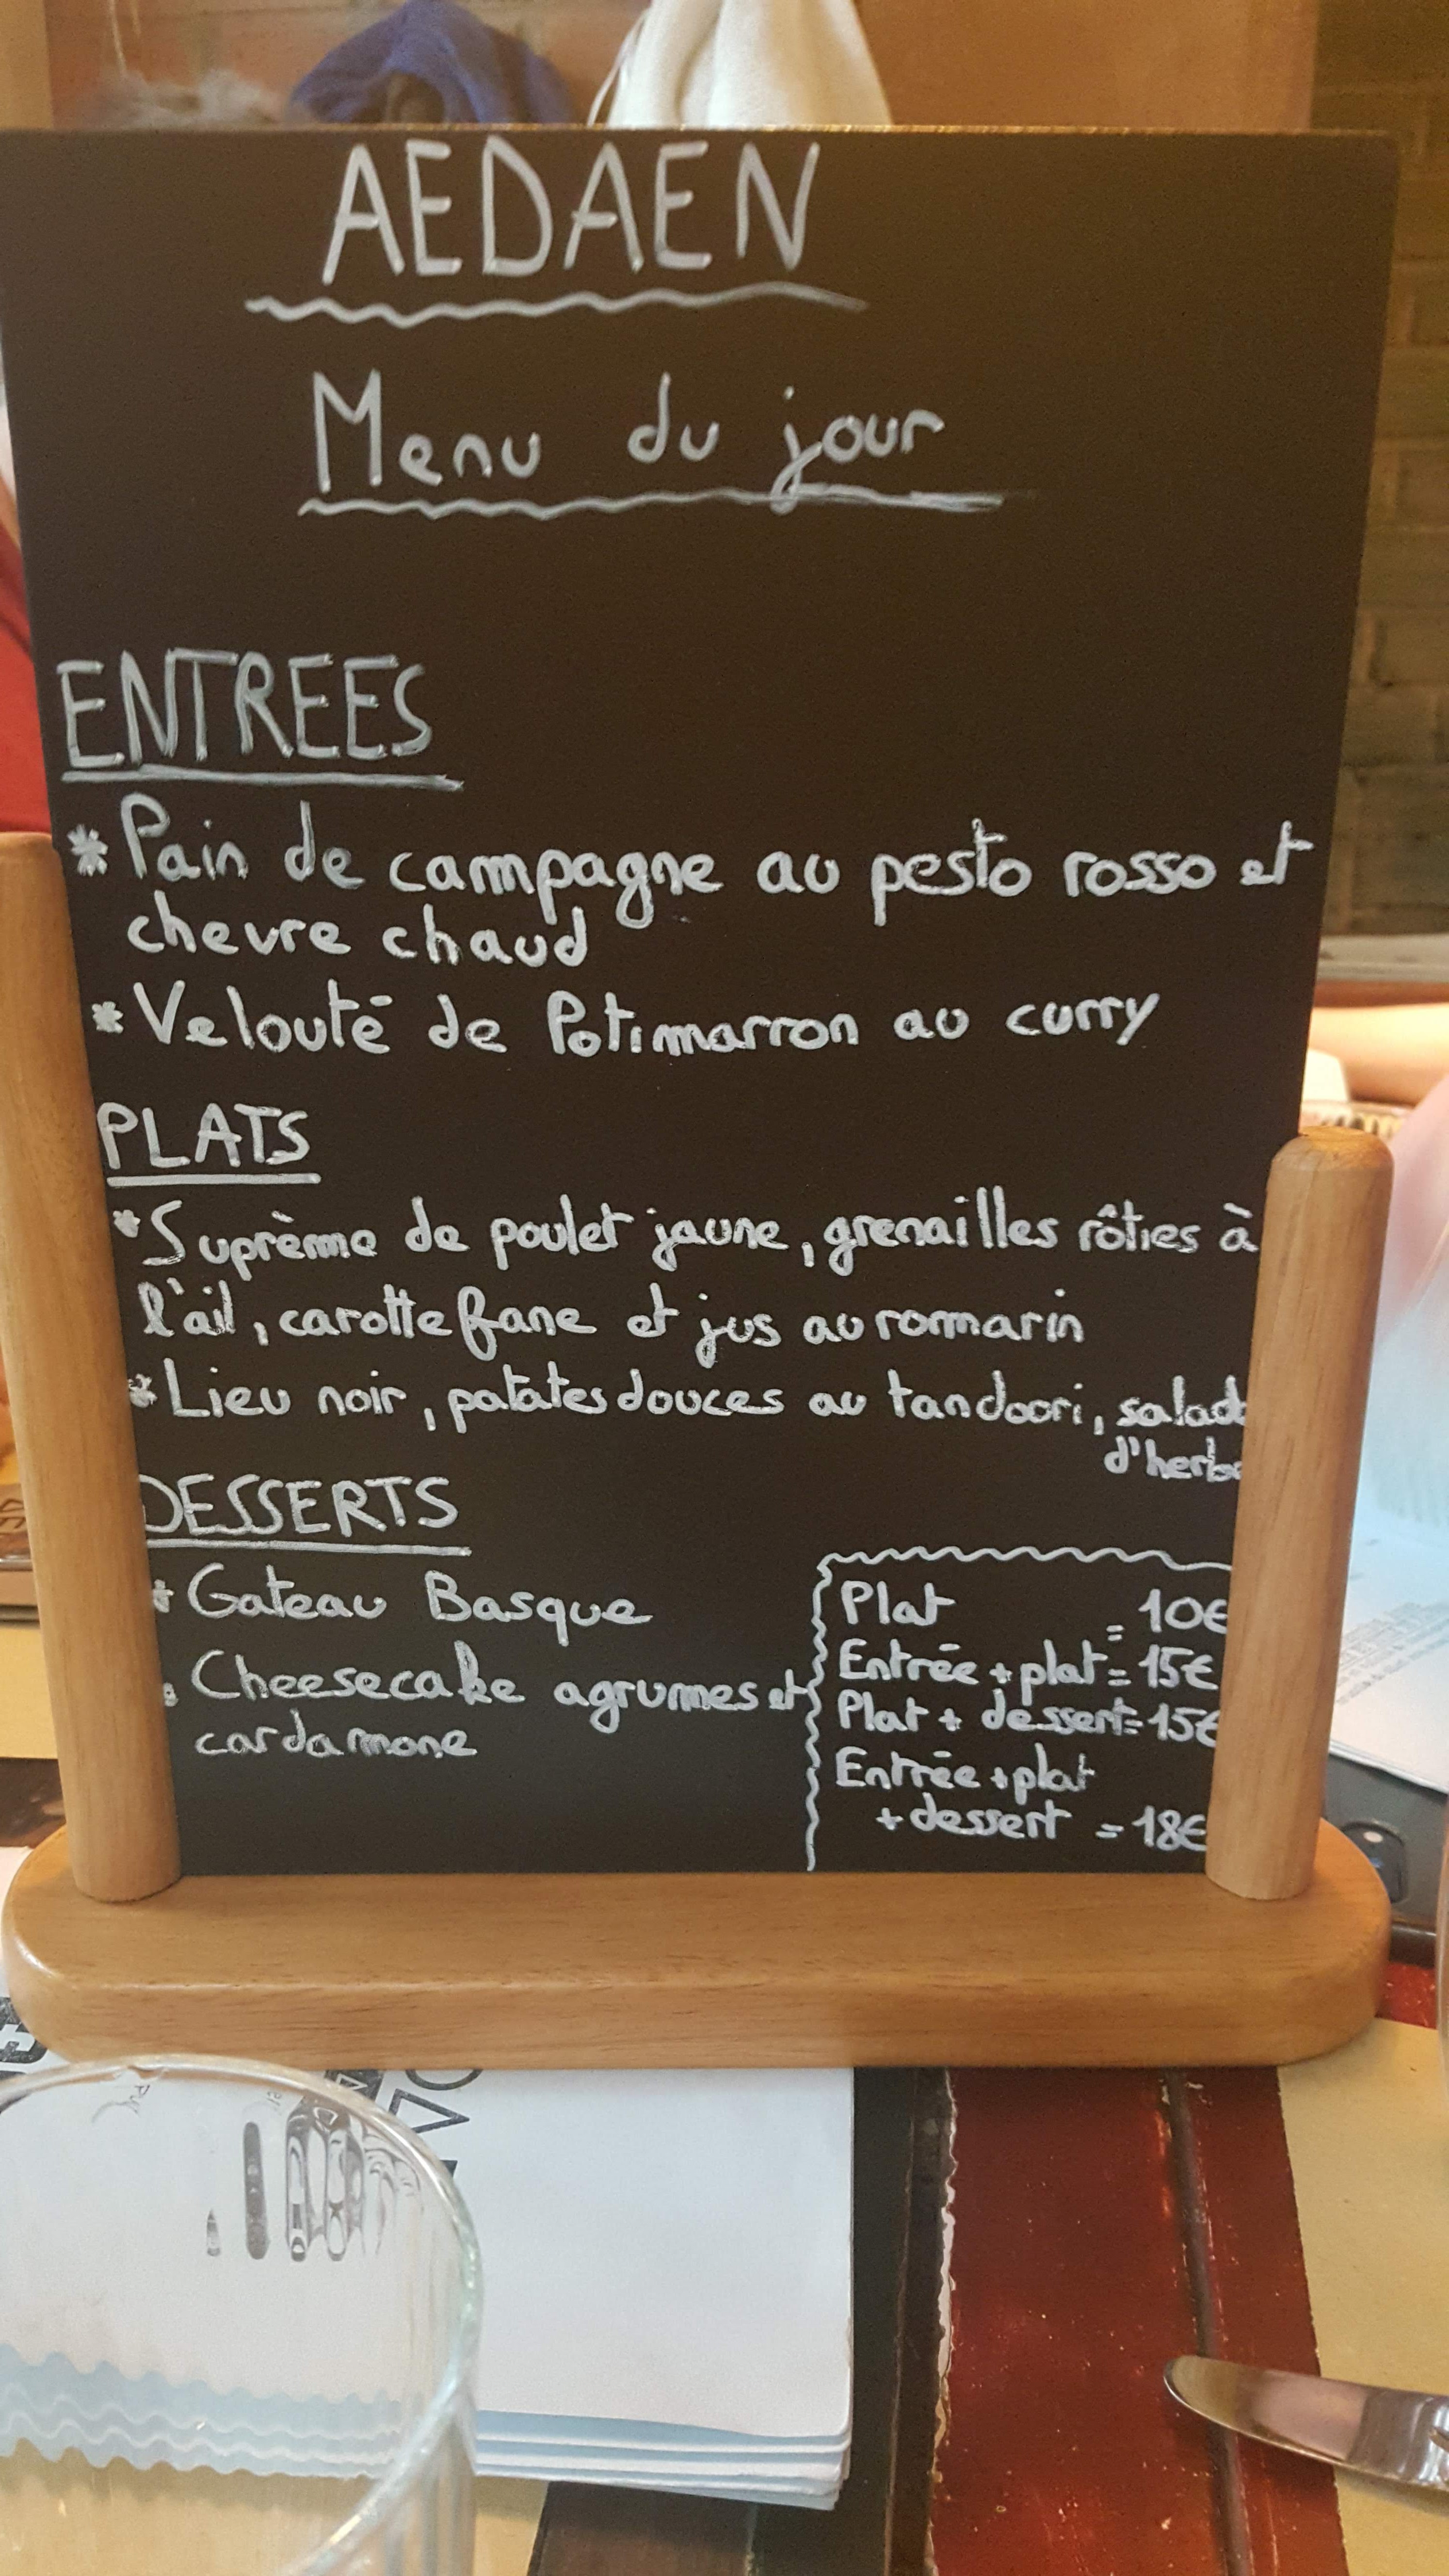 AEDAEN
Menu du jour
ENTREES
* Pain de campagne au pesto rosso et
chevre chaud
* Velouté de Potimarron au curry
PLATS
* Suprème de poulet jaune, grenailles rôties à
l'ail, carotte fane et jus au rommarin
* Lieu noir, patates douces au tandoori, salad
d'herb
DESSERTS
* Gateau Basque
* Cheesecake agrumes et
cardamone
Plat = 10€
Entrée + plat = 15€
Plat + dessert = 15€
Entrée + plat
+ dessert = 18€